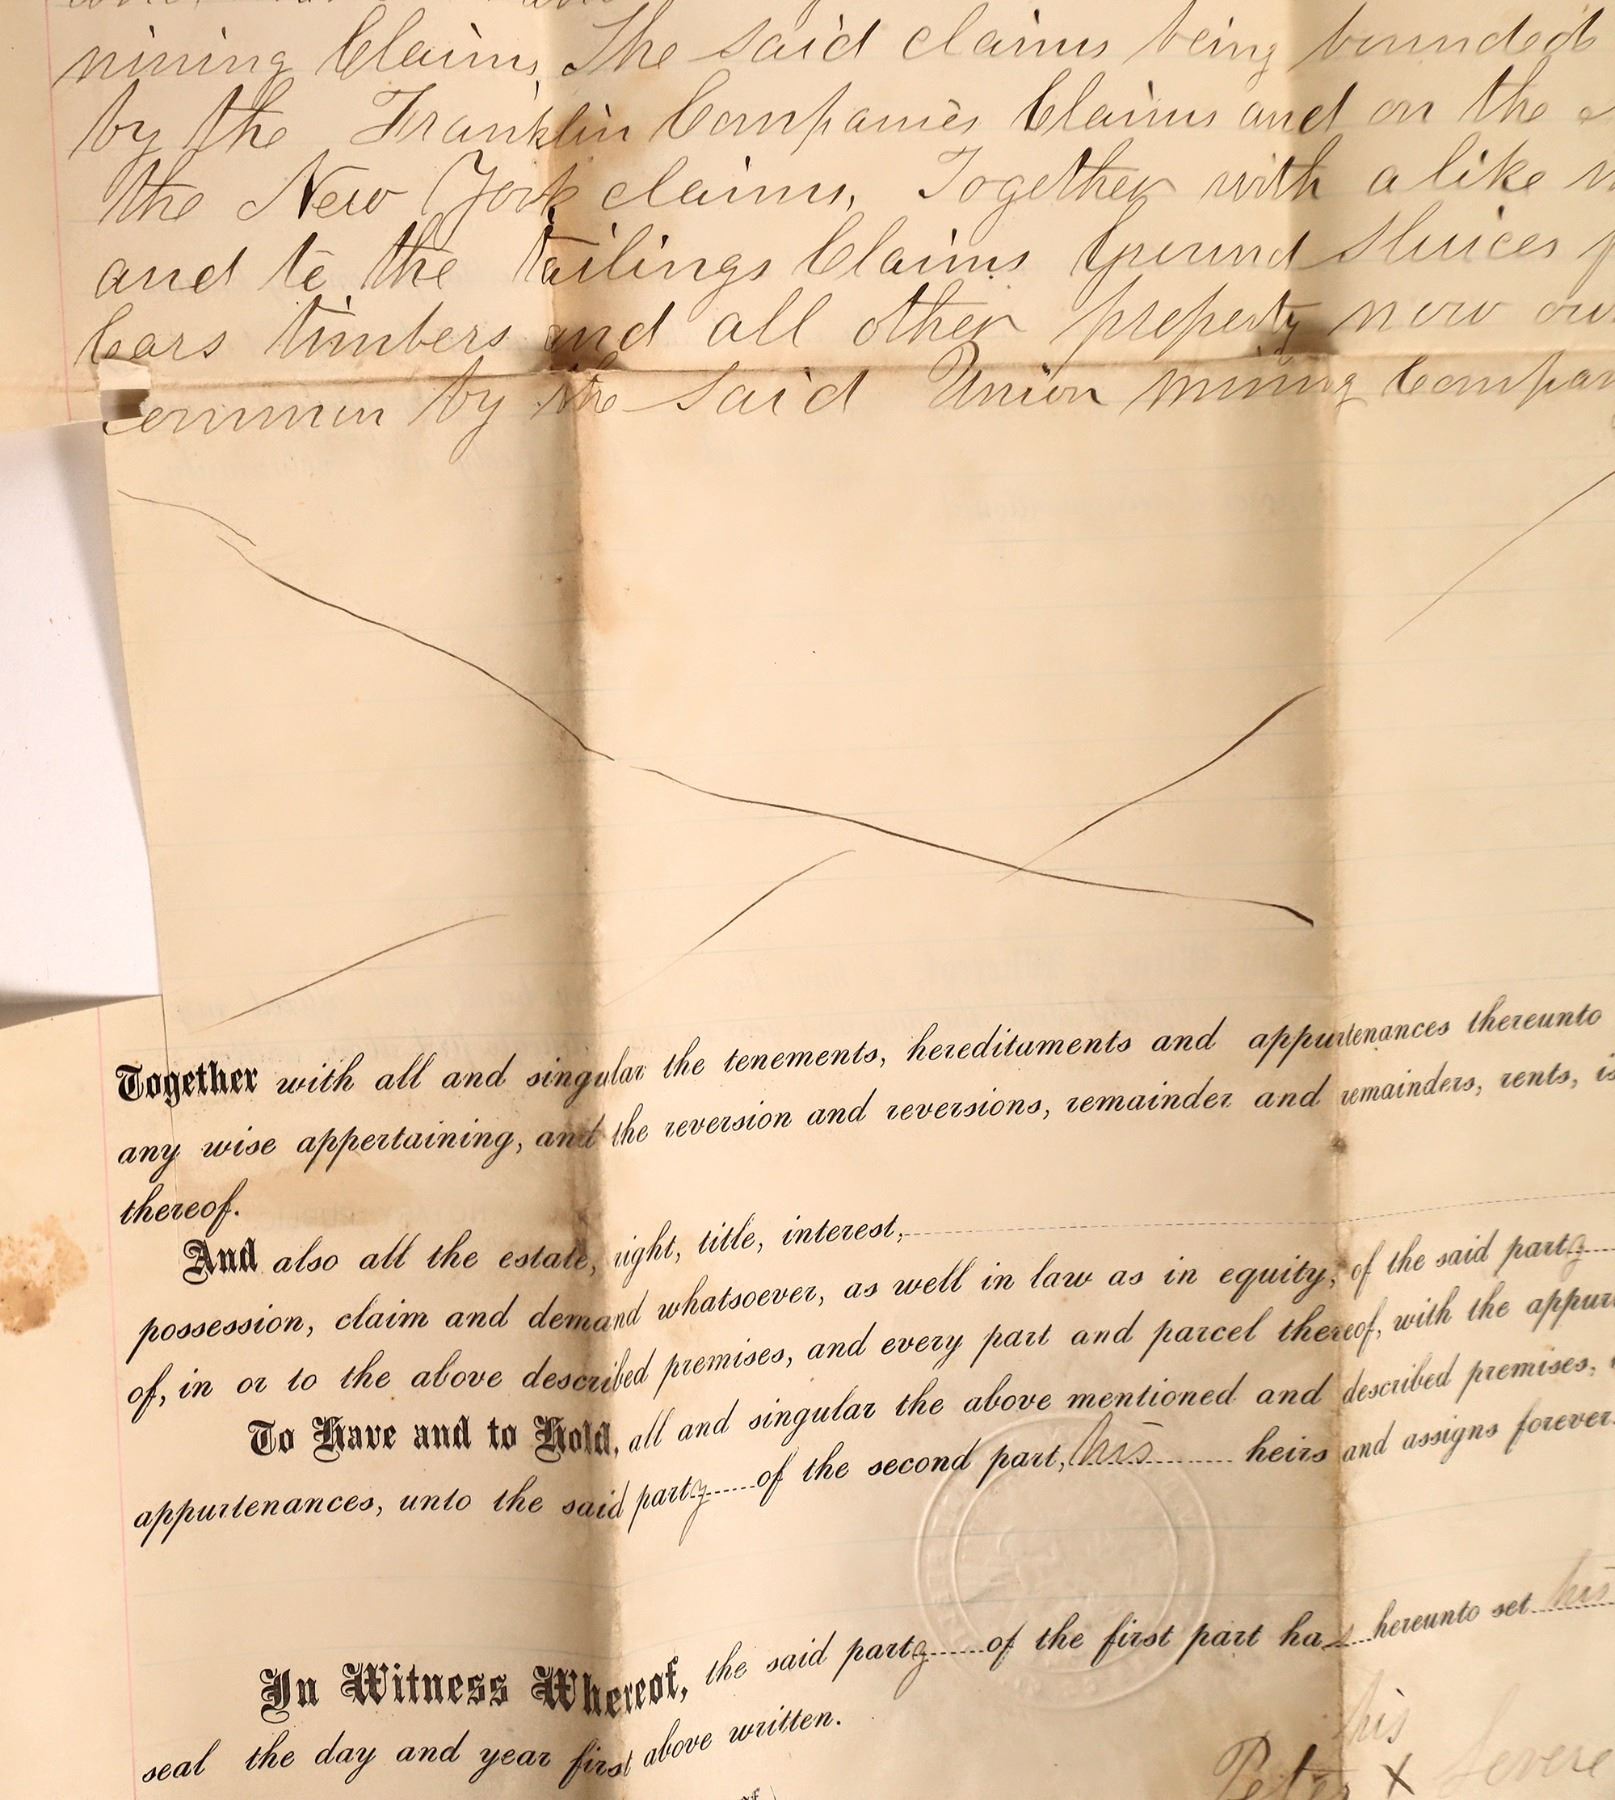 mining Claims, The said claims being bounded
by the Franklin Companies Claims and on the
the New York claims, Together with a like
and to the tailings Claims Ground Sluices
Cars timbers and all other property now
common by the said Union mining Compan
Together with all and singular the tenements, hereditaments and appurtenances thereunto
any wise appertaining, and the reversion and reversions, remainder and remainders, rents, is
thereof.
And also all the estate, right, title, interest,
possession, claim and demand whatsoever, as well in law as in equity, of the said party
of, in or to the above described premises, and every part and parcel thereof, with the appur
To Have and to Hold, all and singular the above mentioned and described premises,
appurtenances, unto the said party of the second part, his heirs and assigns forever.
In Witness Whereof, the said party of the first part has hereunto set his
seal the day and year first above written.
his
Peter X Severe